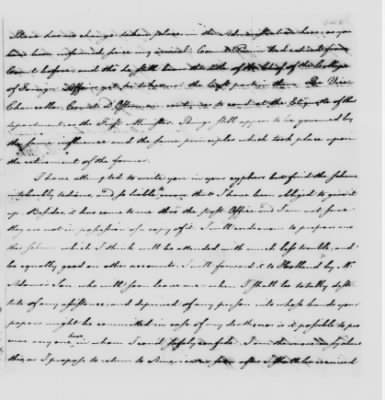 There has no change taken place in the Administration here, as you
have been informed, since my arrival; Count Panin had retired from
Court before, and tho' he still
of Foreign Affairs yet he takes not the least part in them. The Vice
Chancellor, Count d'Osterman, continues to conduct the Etiquette of this
department as the First Minister. Things still appear to be governed by
the same influence and the same principles which took place upon
the retirement of the former.
I have attempted to write you in your cyphers but find the scheme
intolerably tedious, and so liable to errors, that I have been obliged to give it
up. Besides, it has come to me thro' the post Office and I am not sure
they are not in possession of a copy of it. I will endeavour to prepare an
other scheme which I think will be attended with much less trouble, and
be equally good on other accounts. I will forward it to Holland by Mr.
Adams's Son who will soon leave me: when I shall be totally desti-
tute of any assistance and deprived of any person into whose hands your
papers might be committed in case of my death, nor is it possible to pro
cure any one here in whom I could safely confide. I am the more
this, as I propose to return to America as soon after I shall be received